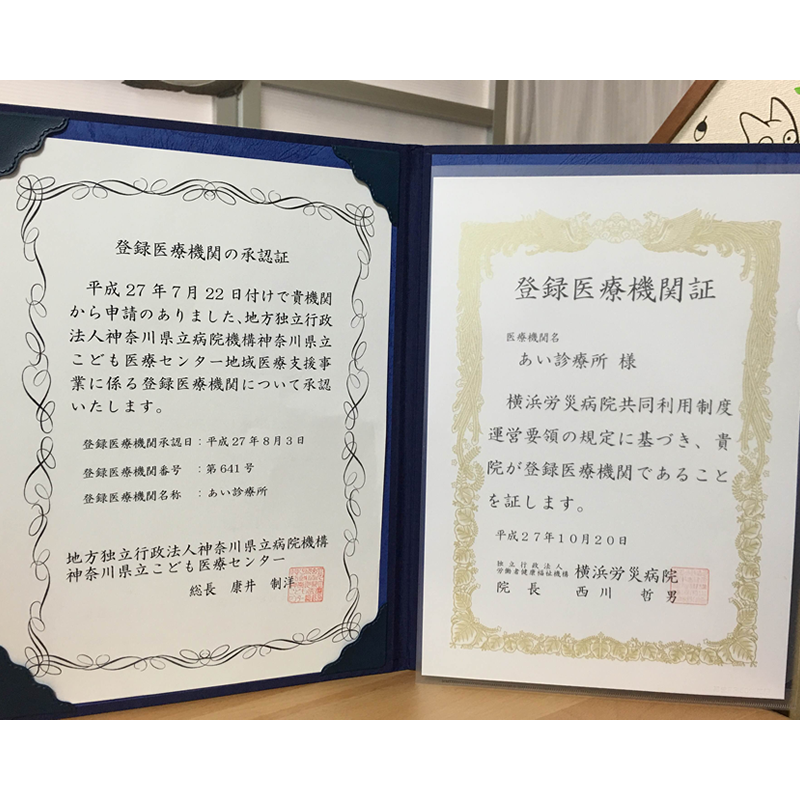 登録医療機関の承認証
平成27年7月22日付けで貴機関
から申請のありました、地方独立行政
法人神奈川県立病院機構神奈川県立
こども医療センター地域医療支援事
業に係る登録医療機関について承認
いたします。
登録医療機関承認日：平成27年8月3日
登録医療機関番号 ：第641号
登録医療機関名称 ：あい診療所
地方独立行政法人神奈川県立病院機構
神奈川県立こども医療センター
総長 康井 制洋
登録医療機関証
医療機関名
あい診療所 様
横浜労災病院共同利用制度
運営要領の規定に基づき、貴
院が登録医療機関であること
を証します。
平成27年10月20日
独立行政法人
労働者健康福祉機構 横浜労災病院
院長 西川 哲男